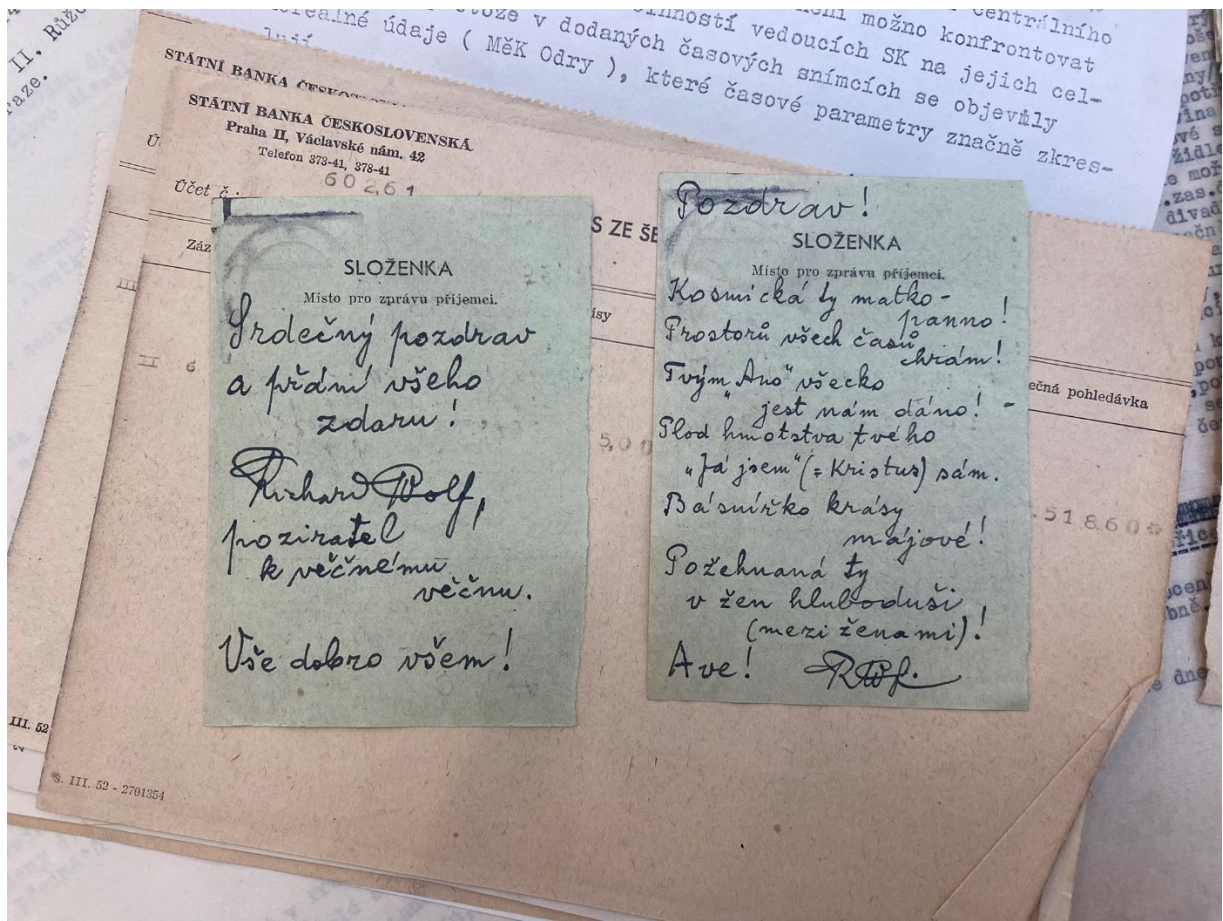 II. Růže
raze.
centrálního
možno konfrontovat
inností vedoucích SK na jejich cel-
stože v dodaných časových snímcích se objevily
nereálné údaje ( MěK Odry ), které časové parametry značně zkres-
lují
STÁTNÍ BANKA
STÁTNÍ BANKA ČESKOSLOVENSKÁ
Praha II, Václavské nám. 42
Telefon 373-41, 378-41
Účet č.:
60261
S ZE ŠE
Záz
isy
ečná pohledávka
II 6
5,00
51860
SLOŽENKA
Místo pro zprávu příjemci.
Srdečný pozdrav
a přání všeho
zdaru!
Richard Wolf,
poziratel
k věčnému
věčnu.
Vše dobro všem!
Pozdrav!
SLOŽENKA
Místo pro zprávu příjemci.
Kosmická ty matko-
panno!
Prostorů všech časů
chrám!
Tvým „Ano" všecko
jest nám dáno! -
Plod hmotstva tvého
„Já jsem" (= Kristus) sám.
Básnířko krásy
májové!
Požehnaná ty
v žen hluboduši,
(mezi ženami)!
Ave! RWf.
III. 52
Š. III. 52 - 2701354